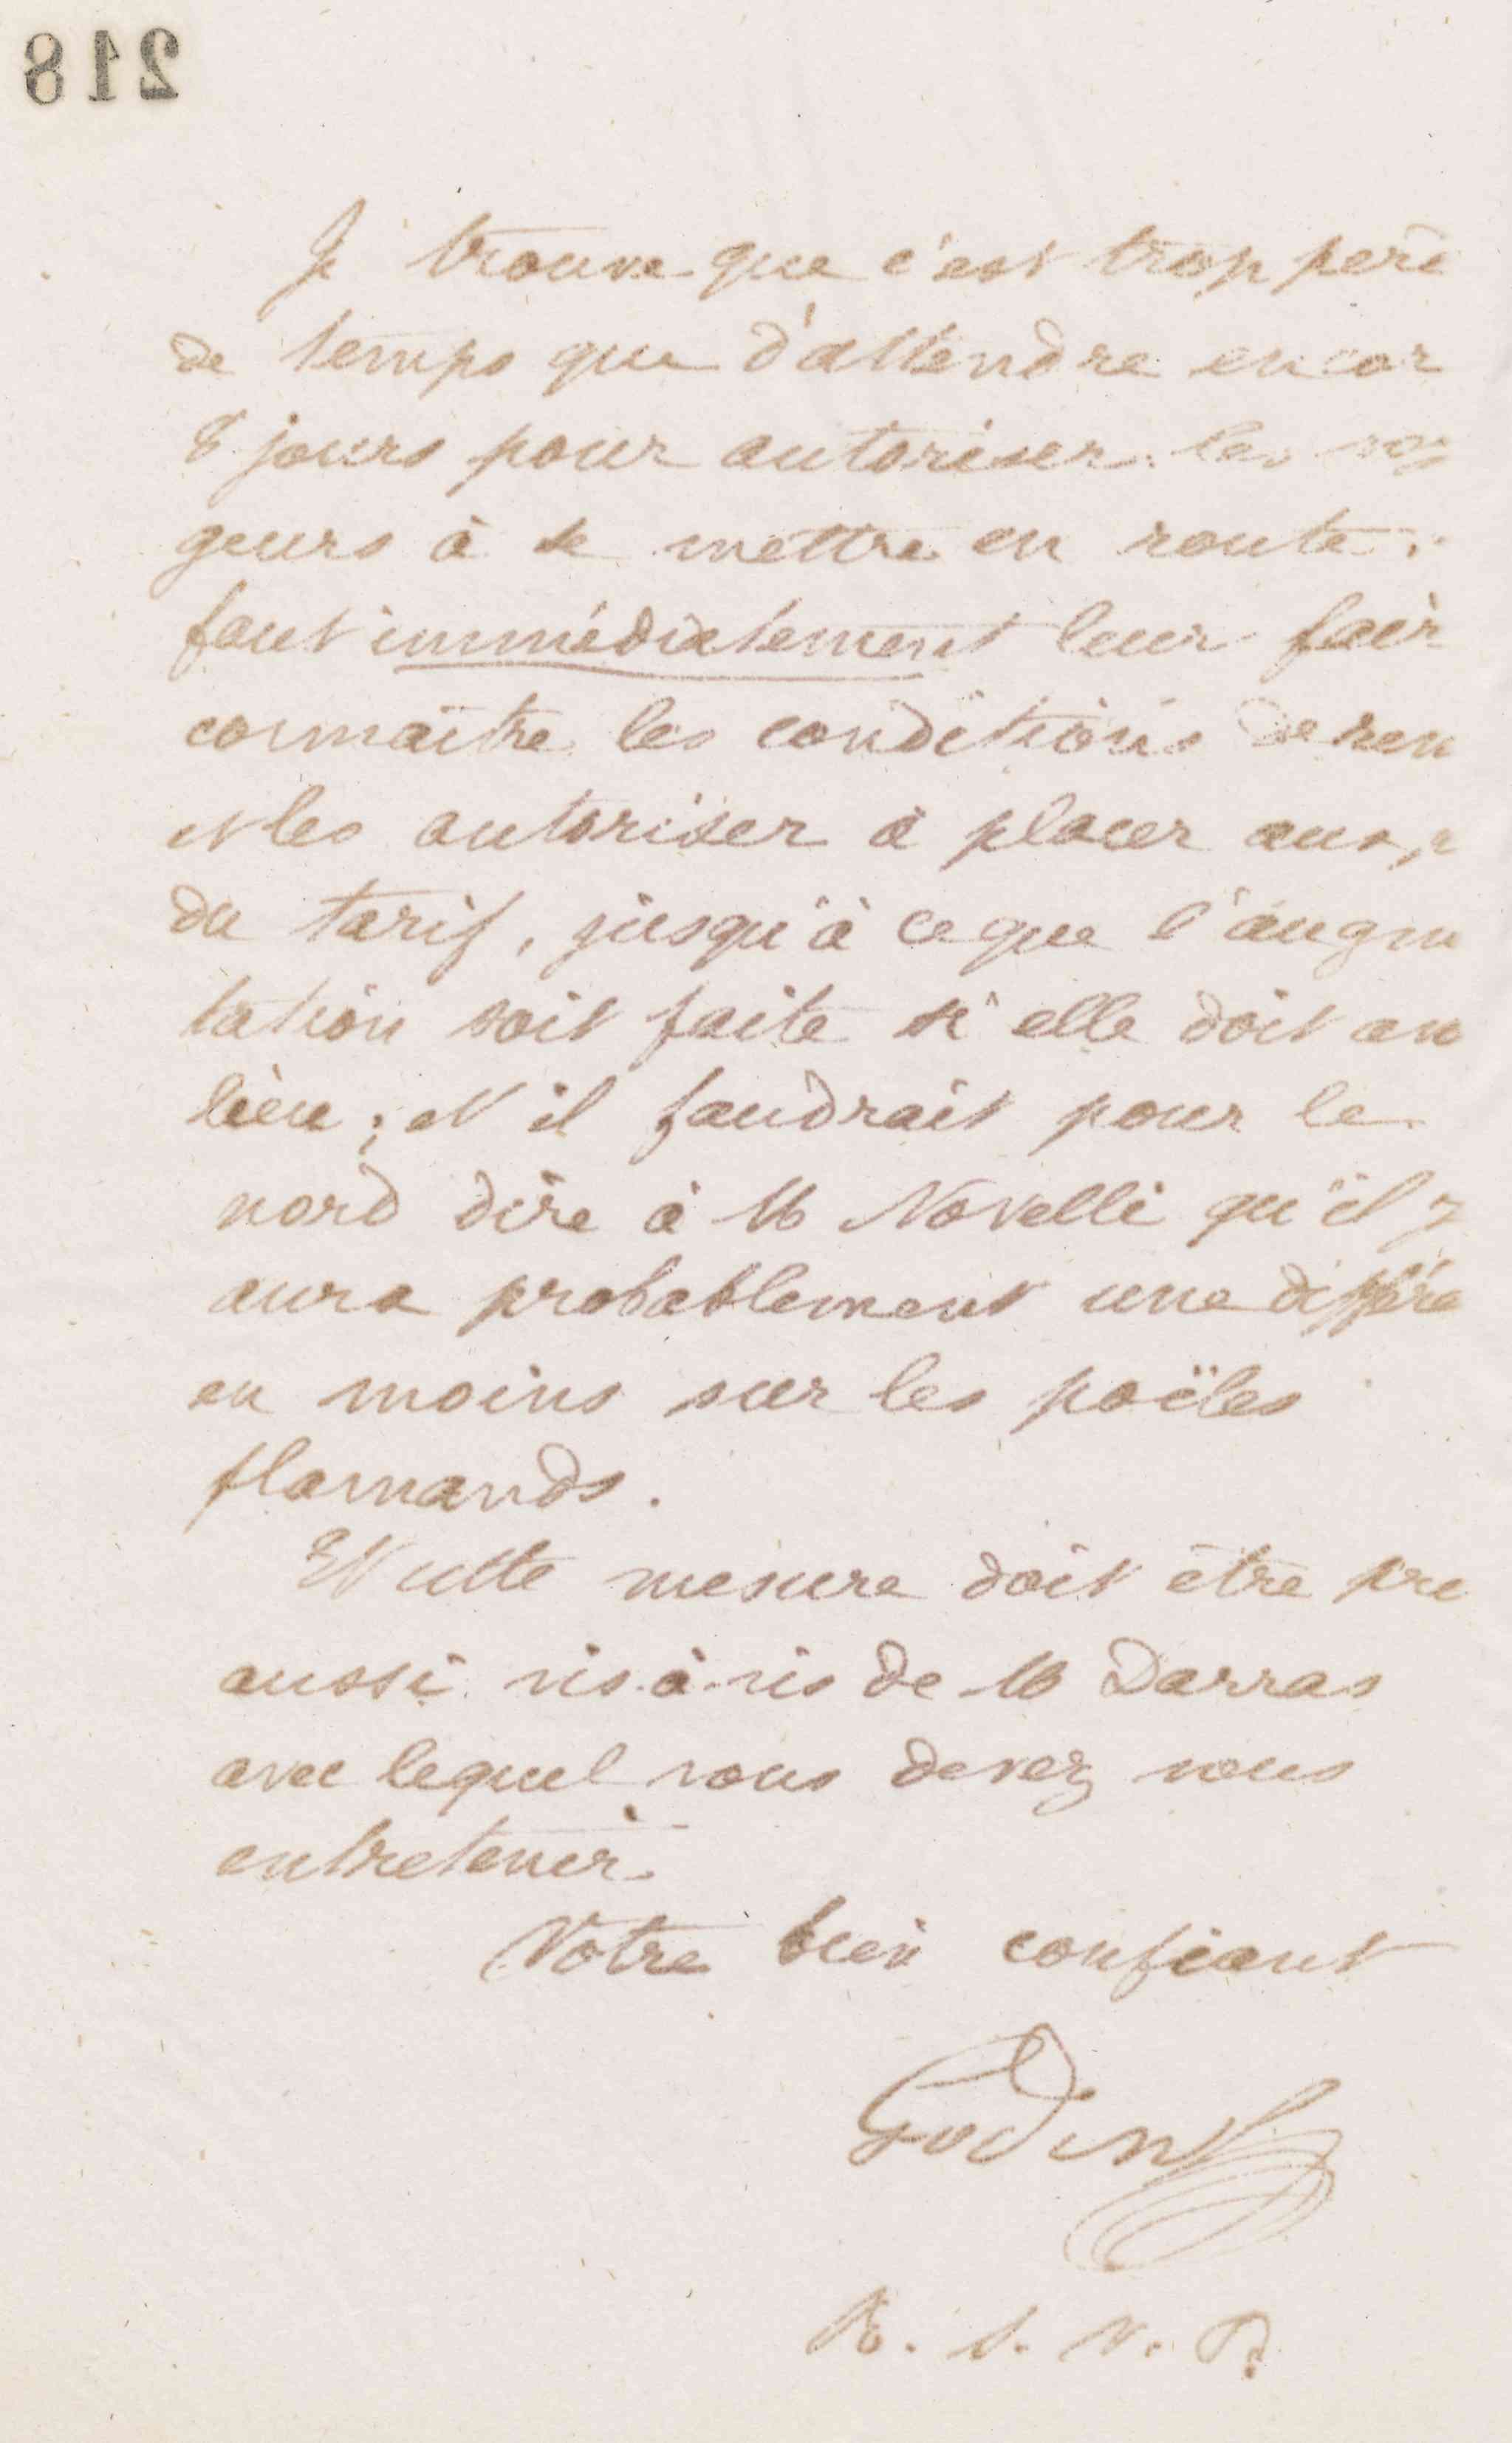 218
Je trouve que c'est trop perd
de temps que d'attendre encor
8 jours pour autoriser les voy
geurs à se mettre en route.
faut immédiatement leur fair
connaître les conditions de ven
et les autoriser à placer aux p
du tarif, jusqu'à ce que l'augm
tation soit faite si elle doit av
lieu ; et il faudrait pour le
nord dire à M Novelli qu'il y
aura probablement une différe
en moins sur les poëles
flamands.
Et cette mesure doit être pri
aussi vis-à-vis de M Darras
avec lequel vous devez vous
entretenir.
Votre bien confiant
Godin
R. S. V. P.